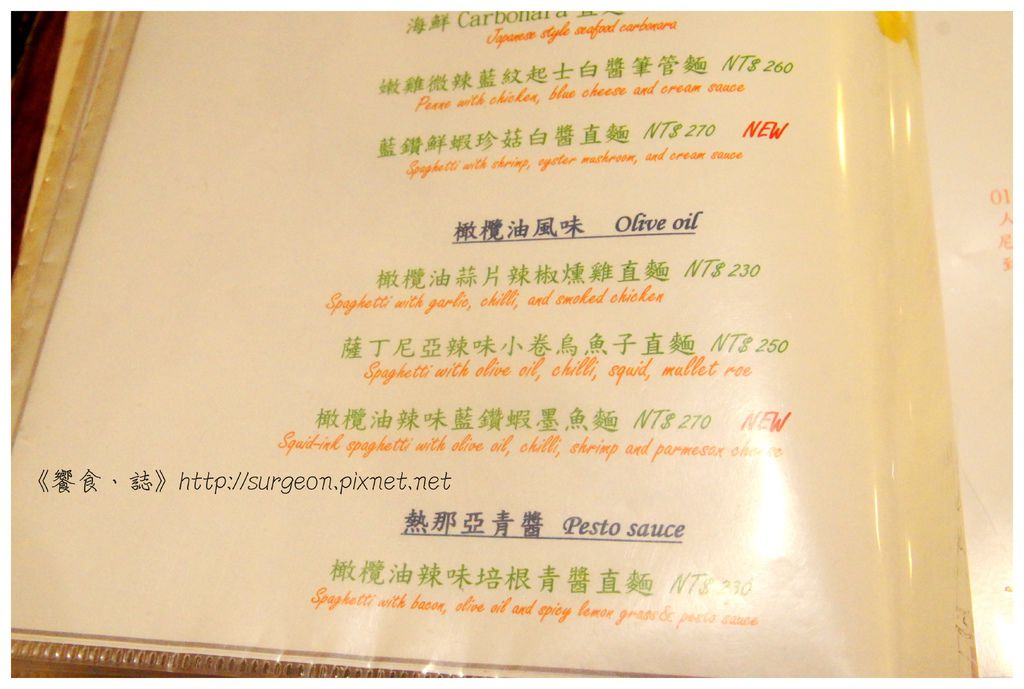 海鮮 Carbonara 直
Japanese style seafood carbonara
嫩雞微辣藍紋起士白醬筆管麵 NT$ 260
Penne with chicken, blue cheese and cream sauce
藍鑽鮮蝦珍菇白醬直麵 NT$ 270 NEW
Spaghetti with shrimp, oyster mushroom, and cream sauce
橄欖油風味 Olive oil
橄欖油蒜片辣椒燻雞直麵 NT$ 230
Spaghetti with garlic, chilli, and smoked chicken
薩丁尼亞辣味小卷烏魚子直麵 NT$ 250
Spaghetti with olive oil, chilli, squid, mullet roe
橄欖油辣味藍鑽蝦墨魚麵 NT$ 270 NEW
Squid-ink spaghetti with olive oil, chilli, shrimp and parmesan cheese
《饗食、誌》http://surgeon.pixnet.net
熱那亞青醬 Pesto sauce
橄欖油辣味培根青醬直麵 NT$ 230
Spaghetti with bacon, olive oil and spicy lemon grass& pesto sauce
01
人
尼